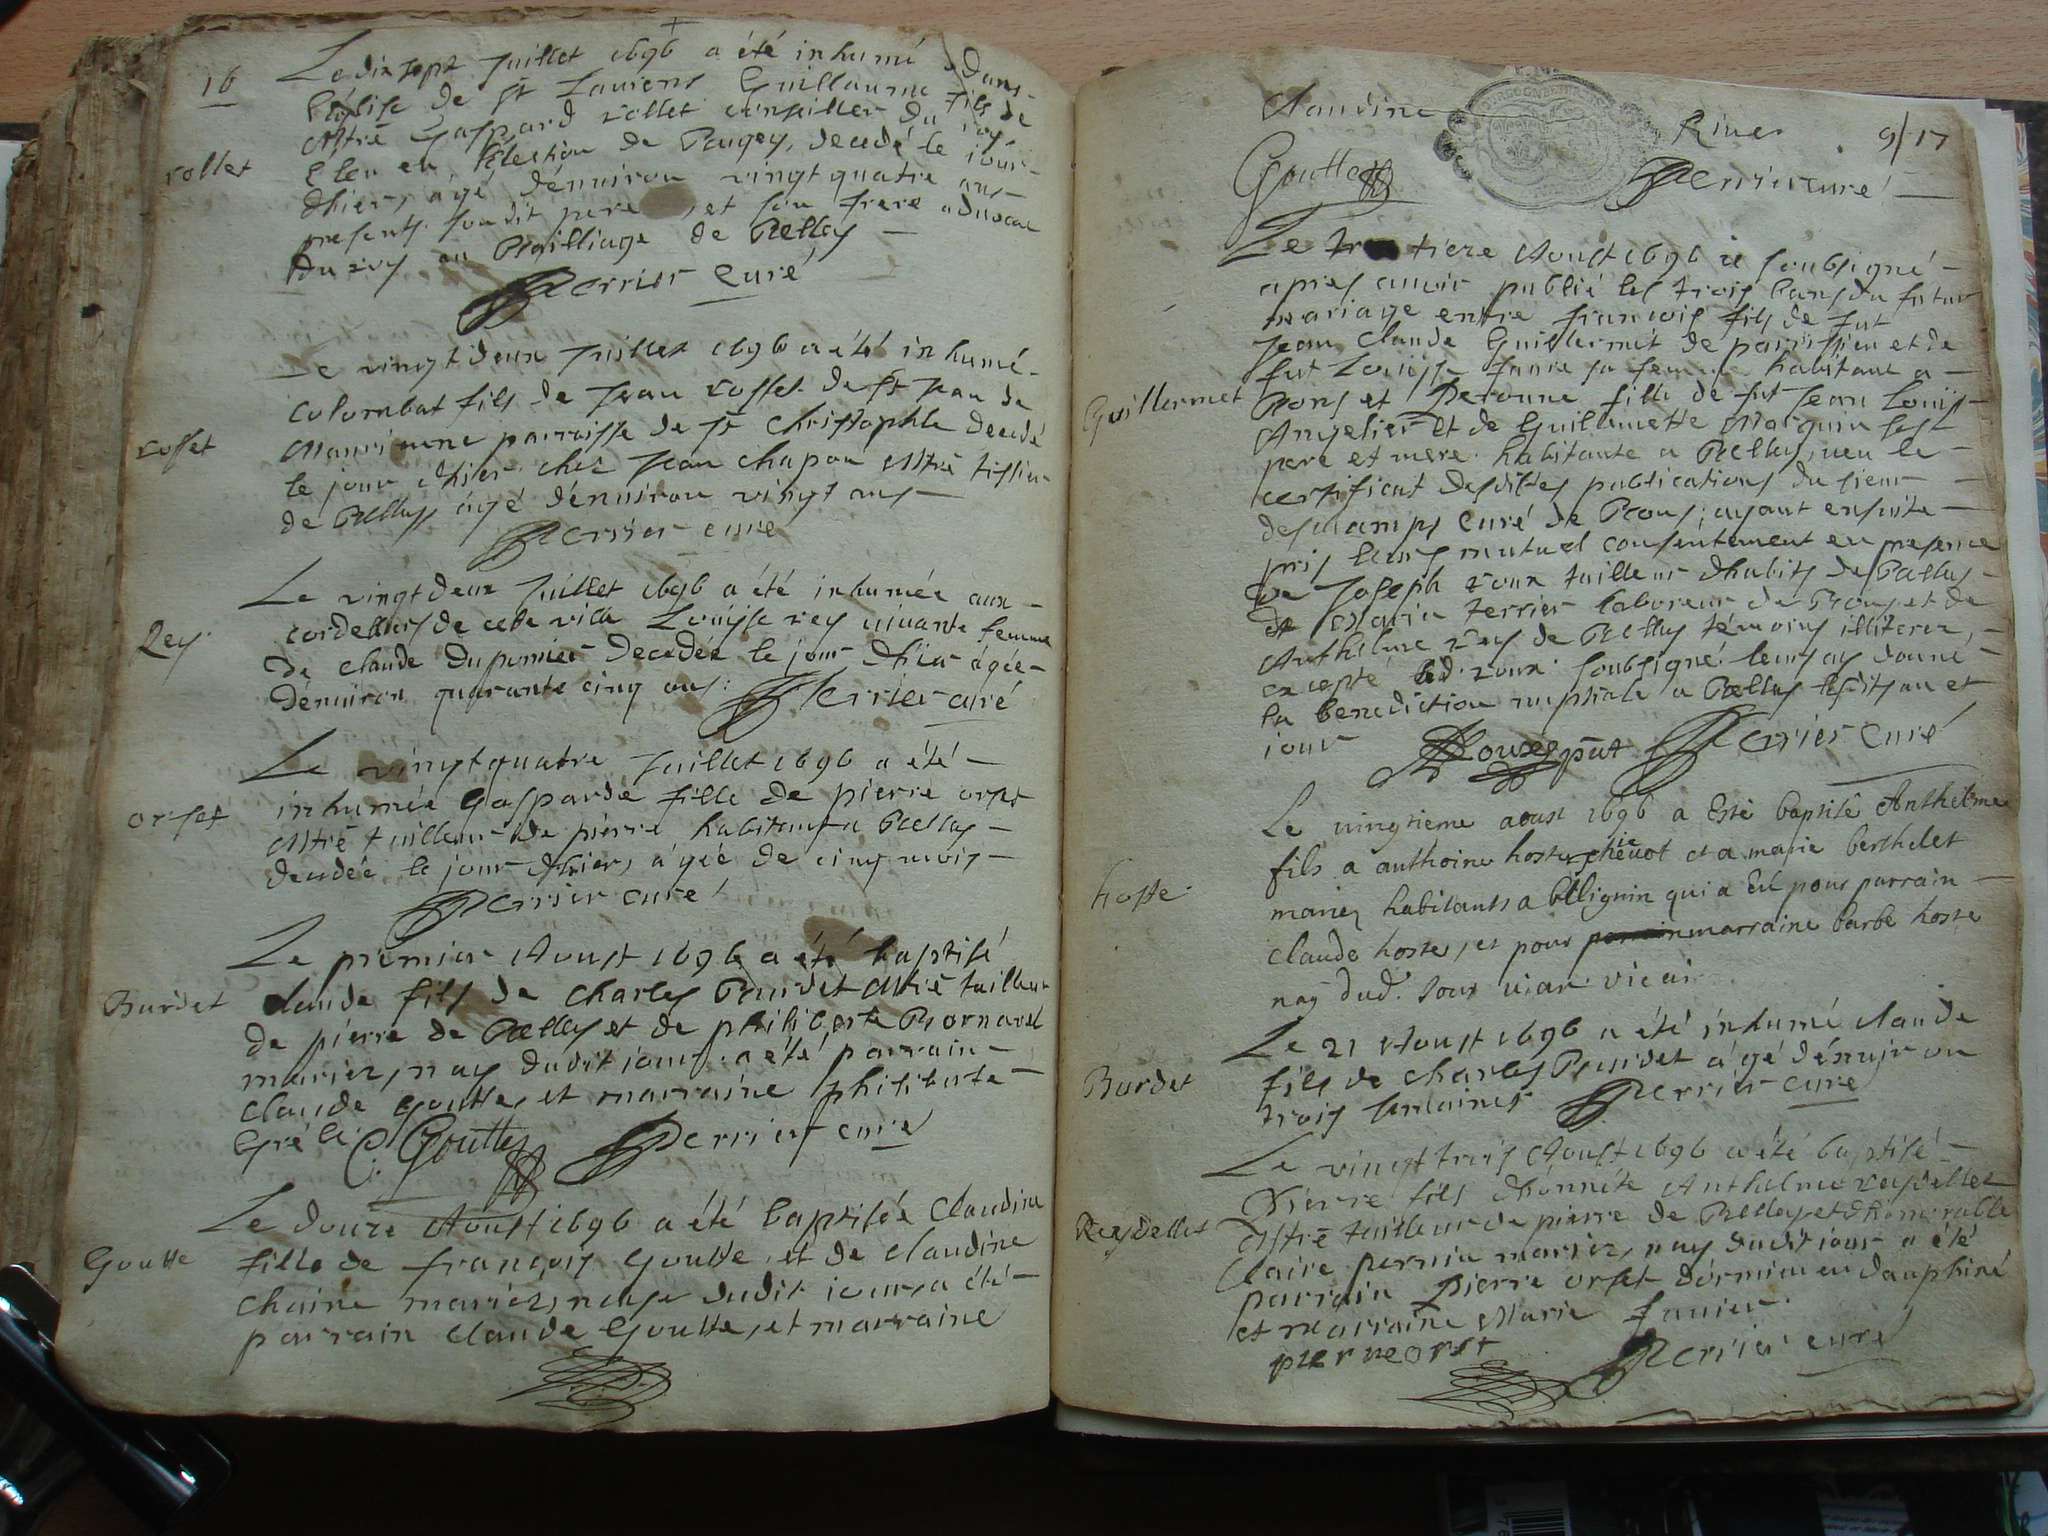 16
Le dix sept Juillet 1696 a été inhumé dans
l'église de St Laurens Guillaume fils de
Mtre Gaspard rollet conseiller du roy
Eleu en l'élection de Beugey, decedé le jour
rollet
dhier, agé dénuiron vingt quatre ans
presents sondit pere, et son frere aduocat
du roy au Bailliage de Belley
Perrier Curé
Le vingt deux Juillet 1696 a été inhumé
Colombat fils de Jean rosset de St Jean de
Maurienne parroisse de St Christophle decedé
rosset
le jour dhier chéz Jean Chapon Mtre tissier
de Belley ágé dénuiron vingt ans
Perrier curé
Le vingt deux Juillet 1696 a été inhumée aux
cordelliers de cete ville Louise rey viuante femme
Rey
de claude du pomier decedée le jour dhier ágée
dénuiron quarante cinq ans: Perrier curé
Le vingt quatre Juillet 1696 a été
inhumée Gasparde fille de pierre orset
orset
Mtre tailleur de pierre habitant a Belley
decedée le jour dhier, ágée de cinq mois
Perrier curé
Le premier Aoust 1696 a été baptisé
Burdet
claude fils de Charles Burdet Mtre tailleur
de pierre de Belley et de philiberte Bornard
mariez, nay dudit jour a été parrain
claude Goutte, et marraine philiberte
Gréli C. Goutte Perrier curé
Le douze Aoust 1696 a été baptisée Claudine
Goutte
fille de françois Goutte, et de claudine
chaine mariéz, neuse dudit iour, a été
parrain claude Goutte, et marraine
Claudine Riue 9/17
Goutte Perrier curé
Le tr tieze Aoust 1696 ie soubsigné
apres auoir publié les trois bans du futur
mariage entre françois fils de fut
Jean Claude Guillermet de parissieu et de
fut Louise Junie sa femme habitant a
Guillermet
Bons et Peronne fille de fut Jean Louis
Angelier et de Guillemette Marquin ses
pere et mere habitante a Belley, ueu le
certificat desdittes publications du sieur
deschamps curé de Bons; ayant ensuite
pris leurs mutuel consentement en presence
de Joseph roux tailleur dhabits de Belley
et Marin terrier laboureur de Bons et de
Anthelme rey de Belley témoins illiterez,
excepté led. roux soubsigné leur ay donné
la benediction nuptiale a Belley lesdits an et
iour J Roux pñt Perrier curé
Le uingtieme aoust 1696 a esté baptisé Anthelme
fils a anthoine hoste cheuot et a marie berthelet
hoste
mariez habitants a billignin qui a eu pour parrain
claude hoste, et pour marraine barbe hoste
nay dud. Jour uiar uicair
Le 21 Aoust 1696 a été inhumé claude
Burdet
fils de Charles Burdet ágé dénuiron
trois semaines Perrier curé
Le vingt trois Aoust 1696 a été baptisé
Pierre fils dhonnête Anthelme reydellet
Reydellet
Mtre tailleur de pierre de Belley et dhonorable
Claire pernin mariez, nay dudit iour a été
parrain pierre orset dórmieu en dauphiné
et marraine Marie Junier
pierre orset Perrier curé